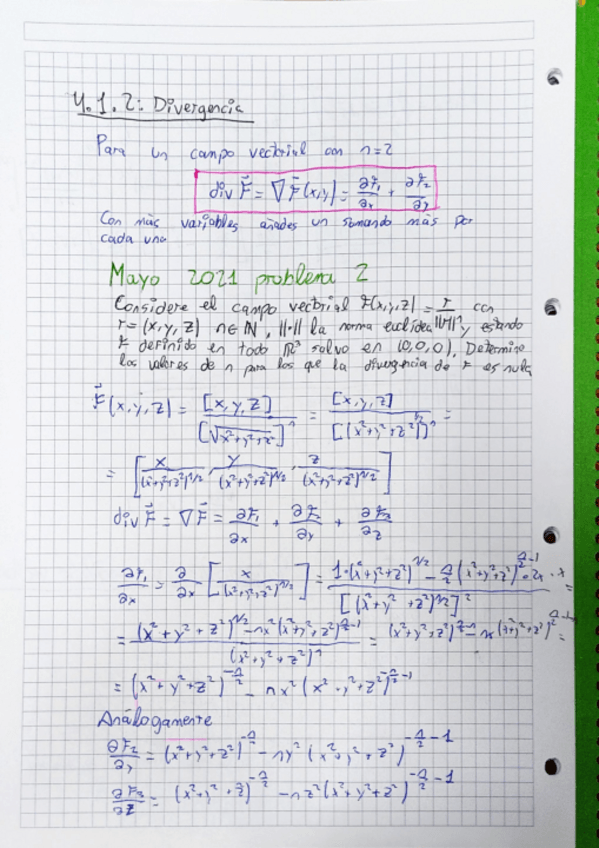 4.1.2: Divergencia
Para un campo vectorial con n=2
div F⃗ = ∇ F⃗(x,y) = ∂F₁/∂x + ∂F₂/∂y
Con más variables añades un sumando más por
cada una
Mayo 2021 problema 2
Considere el campo vectorial F(x,y,z) = r/||r||ⁿ con
r = (x, y, z) n∈ℕ, ||·|| la norma euclídea y estando
F definido en todo ℝ³ salvo en (0,0,0). Determine
los valores de n para los que la divergencia de F es nula
F⃗(x,y,z) = [x,y,z]/[√(x²+y²+z²)]ⁿ = [x,y,z]/[(x²+y²+z²)^(1/2)]ⁿ =
= [x/(x²+y²+z²)^(n/2), y/(x²+y²+z²)^(n/2), z/(x²+y²+z²)^(n/2)]
div F⃗ = ∇F⃗ = ∂F₁/∂x + ∂F₂/∂y + ∂F₃/∂z
∂F₁/∂x = ∂/∂x [x/(x²+y²+z²)^(n/2)] = (1·(x²+y²+z²)^(n/2) − n/2 (x²+y²+z²)^(n/2−1)·2x·x)/[(x²+y²+z²)^(n/2)]² =
= ((x²+y²+z²)^(n/2) − nx²(x²+y²+z²)^(n/2−1))/(x²+y²+z²)ⁿ =
= (x²+y²+z²)^(−n/2) − nx²(x²+y²+z²)^(−n/2−1)
Análogamente
∂F₂/∂y = (x²+y²+z²)^(−n/2) − ny²(x²+y²+z²)^(−n/2−1)
∂F₃/∂z = (x²+y²+z²)^(−n/2) − nz²(x²+y²+z²)^(−n/2−1)